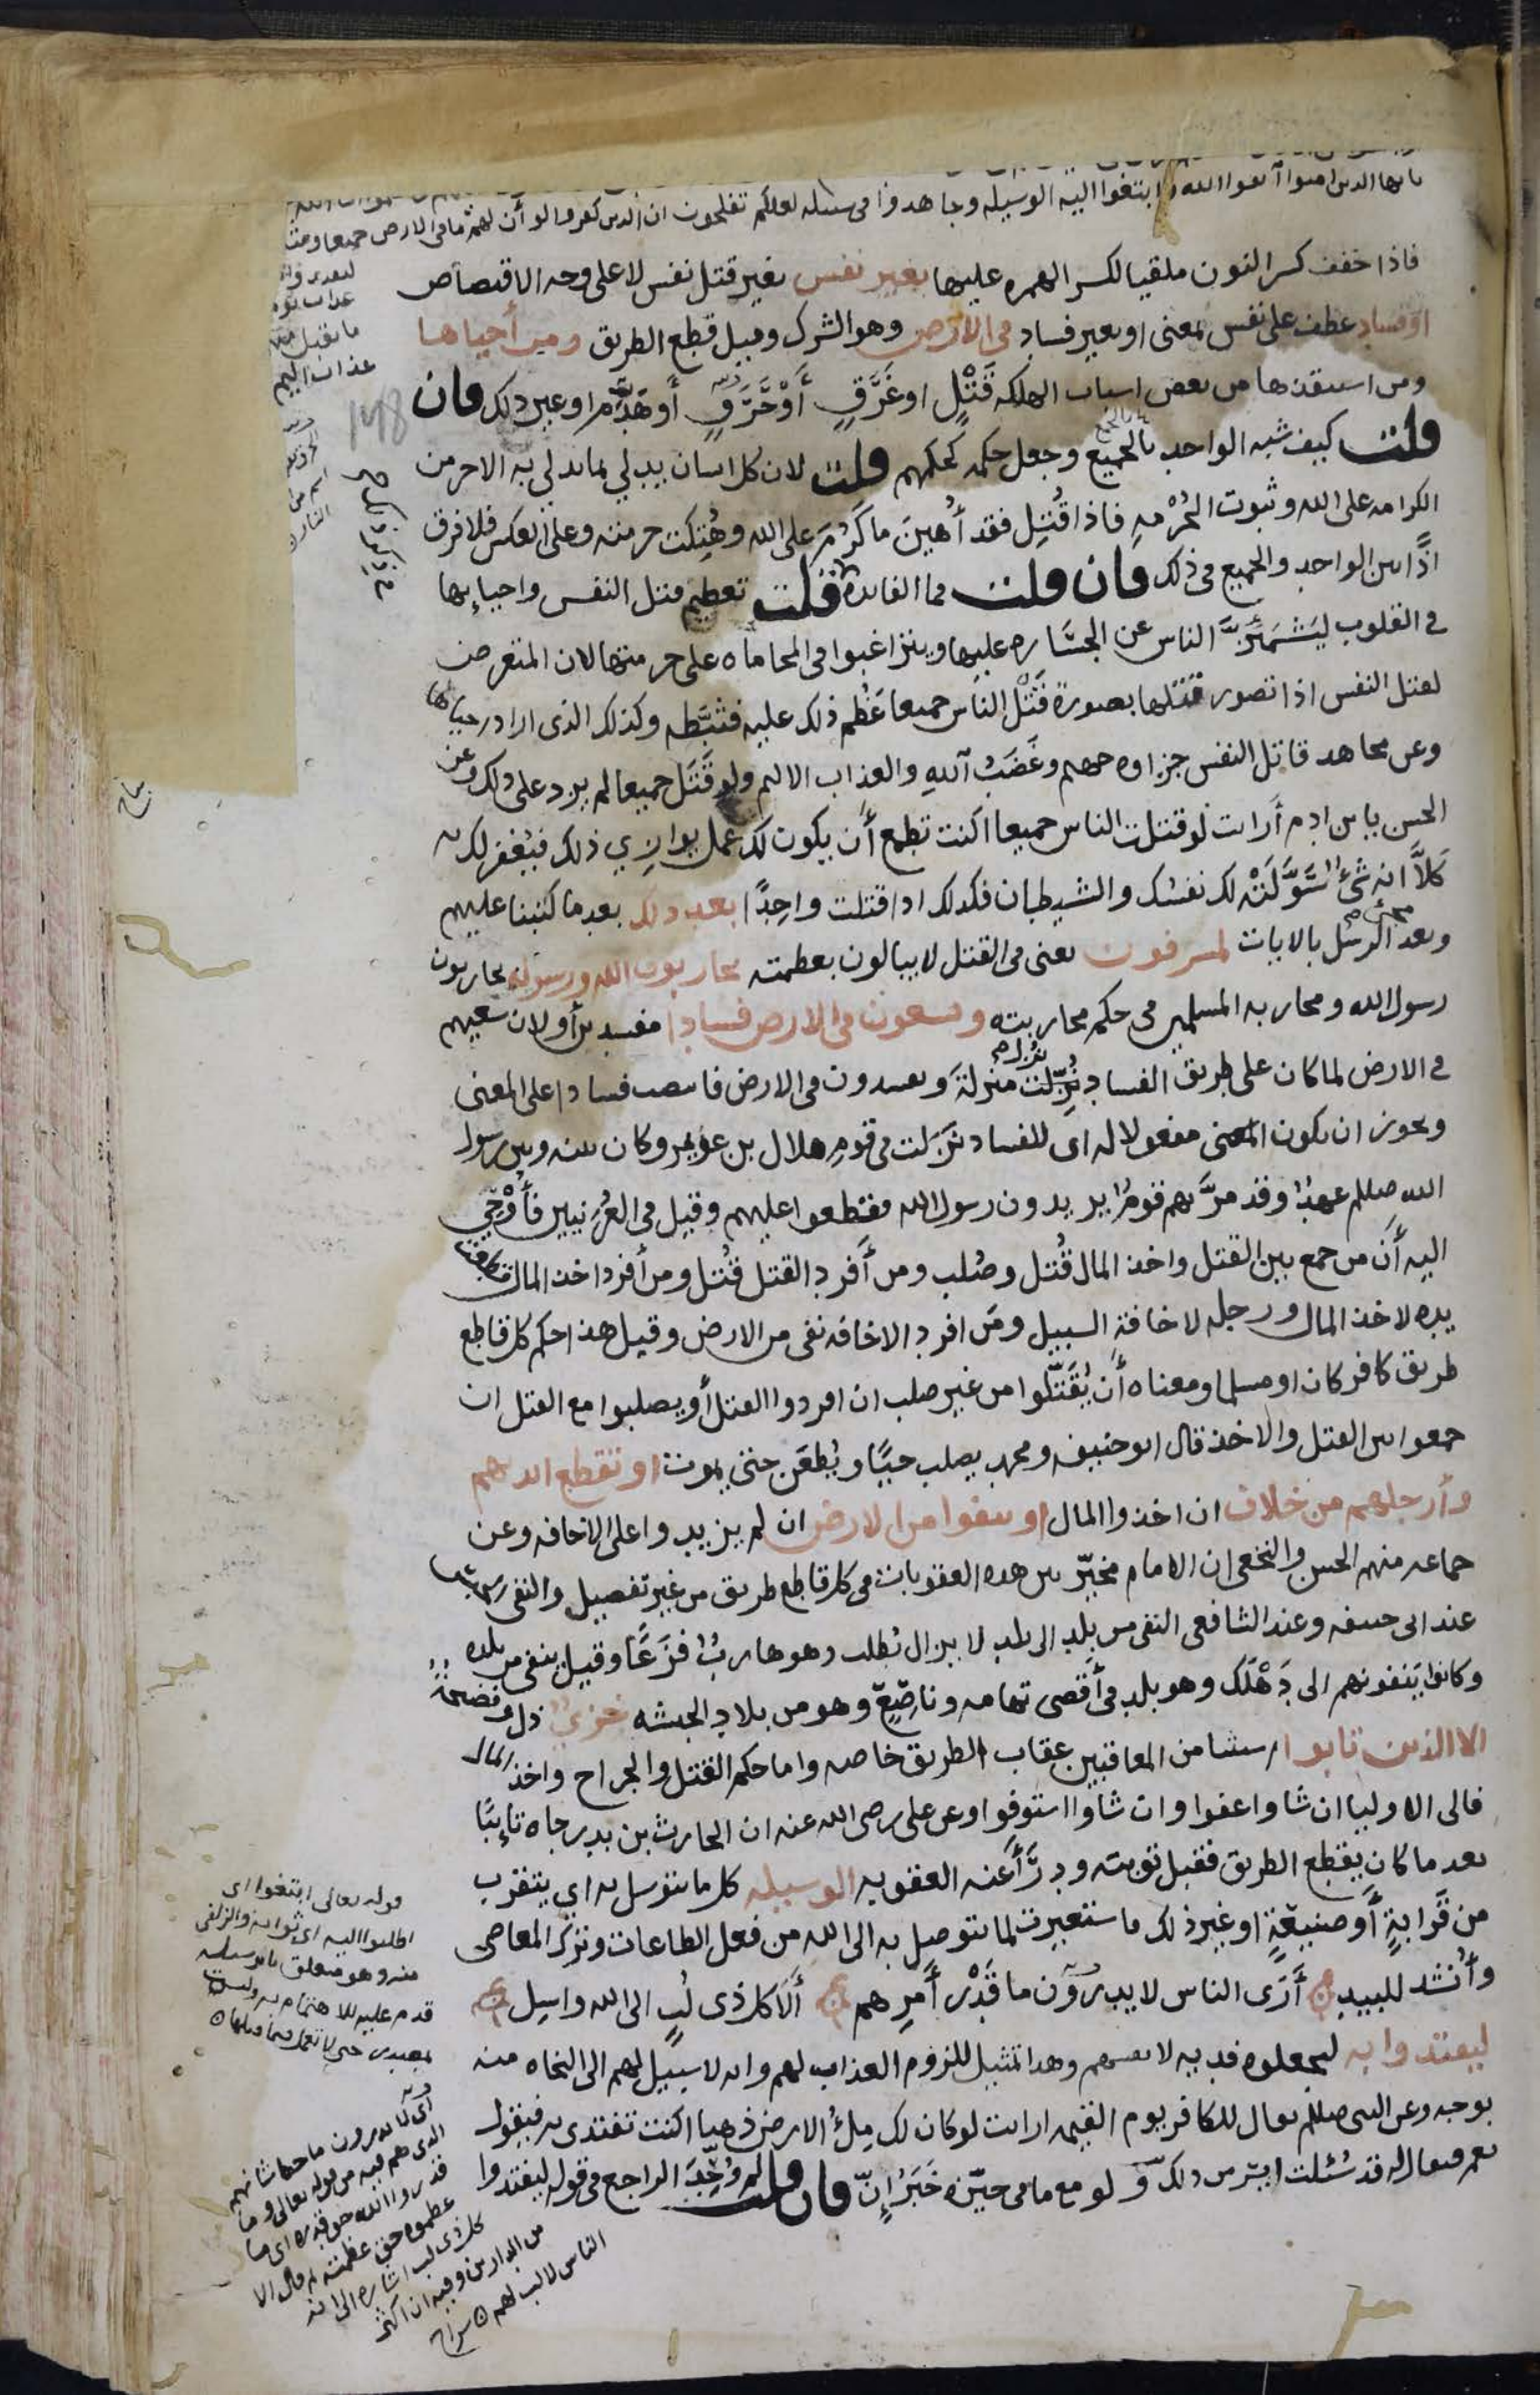 يا يها الذين امنوا اتقوا الله وابتغوا اليه الوسيله وجاهدوا في سبيله لعلكم تفلحون ان الذين كفروا لو أن لهم ما في الارض جميعا ومثله
ليفتدوا به
عذاب يوم
ما تقبل منهم
عذاب اليم
فاذا خفف كسر النون ملقيا لكسر الهمزه عليها بغير نفس بغير قتل نفس لا على وجه الاقتصاص
او فساد عطف على نفس بمعنى او بغير فساد في الارض وهو الشرك وقيل قطع الطريق ومن أحياها
ومن استنقذها من بعض اسباب الهلكه قَتْلٍ او غَرَقٍ أَوْ حَرَقٍ أو هَدْمٍ او غير ذلك فان
قلت كيف شبه الواحد بالجميع وجعل حكمه كحكمهم قلت لان كل انسان يدلي بما يدلي به الاخر من
الكرامه على الله وثبوت الحُرْمهِ فاذا قُتِل فقد أُهينَ ما كَرُمَ على الله وهُتِكت حرمته وعلى العكس فلا فرق
اذًا بين الواحد والجميع في ذلك فان قلت فما الفايدة قلت تعظيم قتل النفس واحيائها
في القلوب ليَشْمَئِزَّ الناس عن الجسَارة عليها ويتراغبوا في المحاماه على حرمتها لان المتعرض
لقتل النفس اذا تصور قتلها بصورة قَتْل الناس جميعا عَظُم ذلك عليه فثبَّطه وكذلك الذي اراد احياءها
وعن مجاهد قاتل النفس جزاوه جهنم وغَضَبُ اللهِ والعذاب الاليم ولو قَتَل جميعا لم يزد على ذلك وعن
الحسن يا بن ادم أرايت لو قتلت الناس جميعا اكنت تطمع أن يكون لك عمل يوازي ذلك فيُغفر لك به
كَلَّا انه شئٌ سَوَّلَتْه لك نفسُك والشيطان فكذلك اذا قتلت واحِدًا بعد ذلك بعد ما كتبنا عليهم
وبعد مجئ الرسل بالايات لمسرفون يعنى في القتل لا يبالون بعظمته يحاربون الله ورسوله يحاربون
رسول الله ومحاربه المسلمين في حكم محاربته ويسعون في الارض فسادا مفسدين أو لان سعيهم
في الارض لما كان على طريق الفساد نُزِّلت منزلةَ ويفسدون في الارض فانتصب فسادا على المعنى
ويجوز ان يكون المعنى مفعولا له اي للفساد نَزَلت في قومِ هلال بن عويمر وكان بينه وبين رسول
الله صللم عهدٌ وقد مرَّ بهم قومٌ يريدون رسول الله فقطعوا عليهم وقيل في العُرَنيين فأُوْحِيَ
اليه أن من جمع بين القتل واخذ المال قُتل وصُلب ومن أَفرد القتل قُتل ومن أفرد اخذ المال قطعت
يده لاخذ المال ورجله لاخافة السبيل ومَن افرد الاخافه نفى من الارض وقيل هذا حكم كل قاطع
طريق كافر كان او مسلما ومعناه أن يُقَتَّلوا من غير صلب ان افردوا القتل أو يصلبوا مع القتل ان
جمعوا بين القتل والاخذ قال ابو حنيفه ومحمد يصلب حيًّا ويُطعَن حتى يموت او تقطع ايديهم
وأرجلهم من خلاف ان اخذوا المال او ينفوا من الارض ان لم يزيدوا على الاخافه وعن
جماعه منهم الحسن والنخعي ان الامام مخيّر بين هذه العقوبات في كل قاطع طريق من غير تفصيل والنفي
عند ابى حنيفه وعند الشافعي النفي من بلد الى بلد لا يزال يُطلب وهو هاربٌ فزَعًا وقيل ينفى من بلده
وكانوا يَنفونهم الى دَهْلَك وهو بلد في أَقصى تهامه وناصِعٍ وهو من بلاد الحبشه خزيٌ ذل وفضيحةٌ
الا الذين تابوا استثنا من المعاقبين عقاب الطريق خاصه واما حكم القتل والجراح واخذ المال
فالى الاوليا ان شاوا عفوا وان شاوا استوفوا وعن على رضي الله عنه ان الحارث بن بدر جاه تائبًا
بعد ما كان يقطع الطريق فقبل توبته ودرَأَ عنه العقوبه الوسيله كل ما يتوسل به اي يتقرب
من قرابةٍ أو صنيعَةٍ او غير ذلك فاستعيرت لما يتوصل به الى الله من فعل الطاعات وترك المعاصي
وأنشد للبيد أَرَى الناس لا يدرون ما قَدْر أَمرِهم أَلَا كل ذى لُبٍ الى الله واسِل
ليفتدوا به ليجعلوه فديه لانفسهم وهذا تمثيل للزوم العذاب لهم وانه لا سبيل لهم الى النجاه منه
بوجه وعن النبى صللم يقال للكافر يوم القيمه ارايت لو كان لك مِلْءُ الارض ذهبا اكنت تفتدي به فيقول
نعم فيقال له قد سُئلت ايسر من ذلك ولو مع ما في حيّزه خَبَرُ إنّ فان قلت لم وُحِّدَ الراجع في قوله ليفتدوا
قوله تعالى ابتغوا اى
اطلبوا اليه اى ثوابه والزلفى
منه وهو متعلق بالوسيله
قدم عليه للاهتمام به وليست
بمصدر حتى لا تعمل فيما قبلها
اى لا يدرون ما حكاشانهم
الذى هم فيه من قوله تعالى وما
قدروا الله حق قدره اى ما
عظموه حق عظمته ثم قال الا
كل ذى لب اشاره الى انه
من الدارين وفيه ان اكثر
الناس لا لب لهم